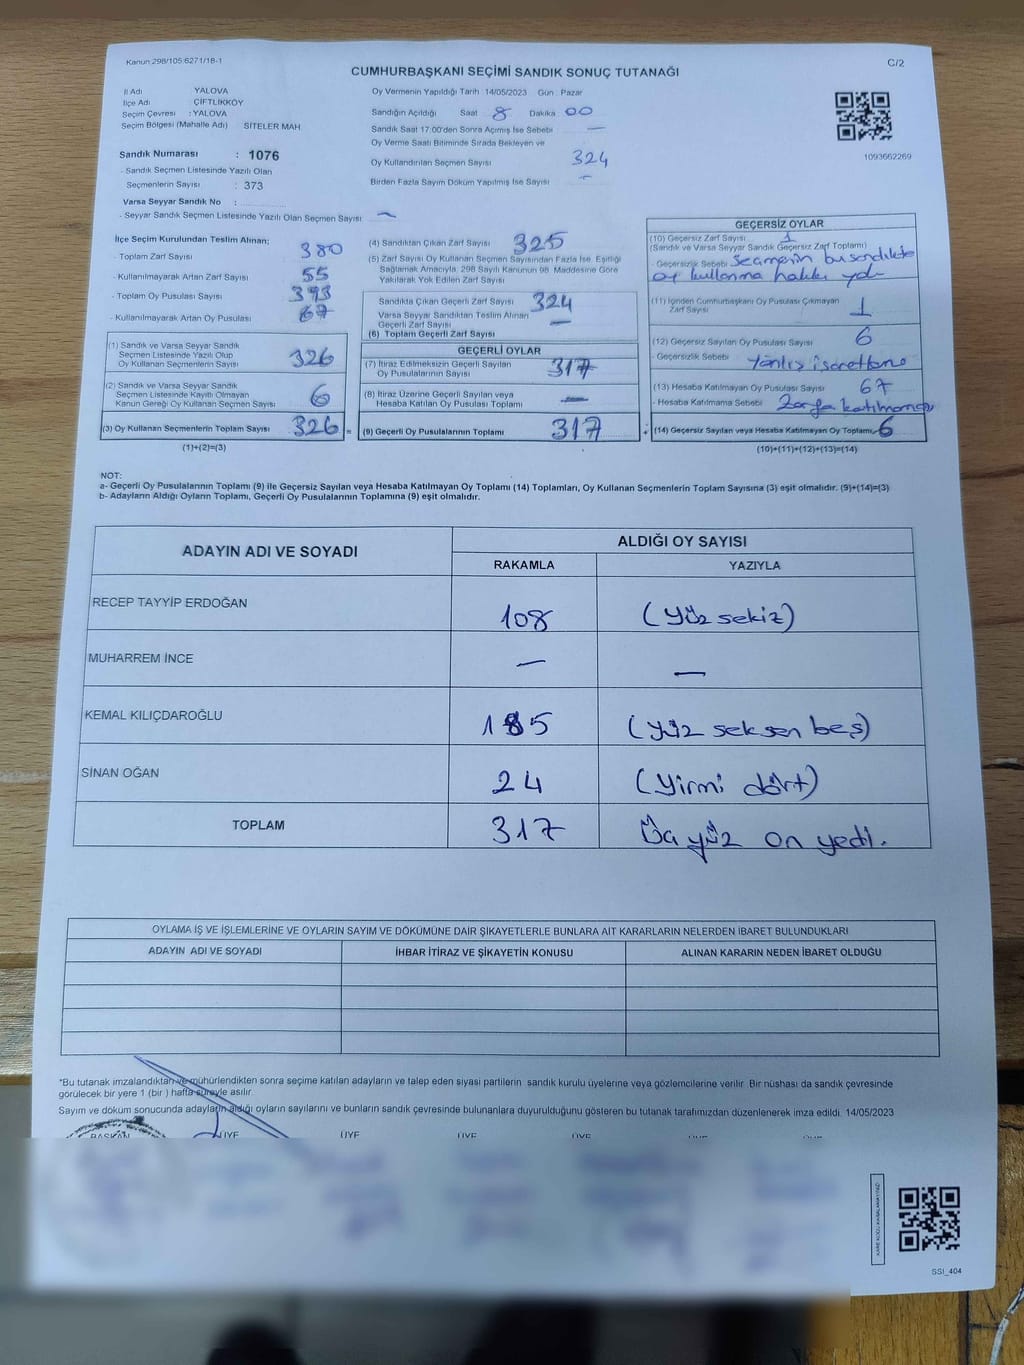 Kanun 298/105.6271/18-1
C/2
CUMHURBAŞKANI SEÇİMİ SANDIK SONUÇ TUTANAĞI
İl Adı YALOVA
İlçe Adı ÇİFTLİKKÖY
Seçim Çevresi : YALOVA
Seçim Bölgesi (Mahalle Adı) SİTELER MAH
Sandık Numarası : 1076
- Sandık Seçmen Listesinde Yazılı Olan
Seçmenlerin Sayısı : 373
Varsa Seyyar Sandık No :
- Seyyar Sandık Seçmen Listesinde Yazılı Olan Seçmen Sayısı: —
Oy Vermenin Yapıldığı Tarih 14/05/2023 Gün : Pazar
Sandığın Açıldığı Saat 8 Dakika 00
Sandık Saat 17:00'den Sonra Açmış İse Sebebi —
Oy Verme Saati Bitiminde Sırada Bekleyen ve
Oy Kullandırılan Seçmen Sayısı 324
Birden Fazla Sayım Döküm Yapılmış İse Sayısı —
1093662269
İlçe Seçim Kurulundan Teslim Alınan;
- Toplam Zarf Sayısı 380
- Kullanılmayarak Artan Zarf Sayısı 55
- Toplam Oy Pusulası Sayısı 393
- Kullanılmayarak Artan Oy Pusulası 67
(1) Sandık ve Varsa Seyyar Sandık
Seçmen Listesinde Yazılı Olup
Oy Kullanan Seçmenlerin Sayısı 326
(2) Sandık ve Varsa Seyyar Sandık
Seçmen Listesinde Kayıtlı Olmayan
Kanun Gereği Oy Kullanan Seçmen Sayısı 6
(3) Oy Kullanan Seçmenlerin Toplam Sayısı 326 =
(1)+(2)=(3)
(4) Sandıktan Çıkan Zarf Sayısı 325
(5) Zarf Sayısı Oy Kullanan Seçmen Sayısından Fazla İse, Eşitliği
Sağlamak Amacıyla, 298 Sayılı Kanunun 98. Maddesine Göre
Yakılarak Yok Edilen Zarf Sayısı
Sandıkta Çıkan Geçerli Zarf Sayısı 324
Varsa Seyyar Sandıktan Teslim Alınan
Geçerli Zarf Sayısı —
(6) Toplam Geçerli Zarf Sayısı
GEÇERLİ OYLAR
(7) İtiraz Edilmeksizin Geçerli Sayılan
Oy Pusulalarının Sayısı 317
(8) İtiraz Üzerine Geçerli Sayılan veya
Hesaba Katılan Oy Pusulası Toplamı —
(9) Geçerli Oy Pusulalarının Toplamı 317 +
GEÇERSİZ OYLAR
(10) Geçersiz Zarf Sayısı 1
(Sandık ve Varsa Seyyar Sandık Geçersiz Zarf Toplamı)
- Geçersizlik Sebebi Seçmenin bu sandıkta
oy kullanma hakkı yok
(11) İçinden Cumhurbaşkanı Oy Pusulası Çıkmayan
Zarf Sayısı 1
(12) Geçersiz Sayılan Oy Pusulası Sayısı 6
- Geçersizlik Sebebi Yanlış işaretleme
(13) Hesaba Katılmayan Oy Pusulası Sayısı 67
- Hesaba Katılmama Sebebi Zarfa katılmamış
(14) Geçersiz Sayılan veya Hesaba Katılmayan Oy Toplamı 6
(10)+(11)+(12)+(13)=(14)
NOT:
a- Geçerli Oy Pusulalarının Toplamı (9) ile Geçersiz Sayılan veya Hesaba Katılmayan Oy Toplamı (14) Toplamları, Oy Kullanan Seçmenlerin Toplam Sayısına (3) eşit olmalıdır. (9)+(14)=(3)
b- Adayların Aldığı Oyların Toplamı, Geçerli Oy Pusulalarının Toplamına (9) eşit olmalıdır.
ADAYIN ADI VE SOYADI
ALDIĞI OY SAYISI
RAKAMLA YAZIYLA
RECEP TAYYİP ERDOĞAN 108 (Yüz sekiz)
MUHARREM İNCE — —
KEMAL KILIÇDAROĞLU 185 (yüz seksen beş)
SİNAN OĞAN 24 (Yirmi dört)
TOPLAM 317 Üç yüz on yedi.
OYLAMA İŞ VE İŞLEMLERİNE VE OYLARIN SAYIM VE DÖKÜMÜNE DAİR ŞİKAYETLERLE BUNLARA AİT KARARLARIN NELERDEN İBARET BULUNDUKLARI
ADAYIN ADI VE SOYADI İHBAR İTİRAZ VE ŞİKAYETİN KONUSU ALINAN KARARIN NEDEN İBARET OLDUĞU
*Bu tutanak imzalandıktan ve mühürlendikten sonra seçime katılan adayların ve talep eden siyasi partilerin sandık kurulu üyelerine veya gözlemcilerine verilir. Bir nüshası da sandık çevresinde
görülecek bir yere 1 (bir ) hafta süreyle asılır.
Sayım ve döküm sonucunda adayların aldığı oyların sayılarını ve bunların sandık çevresinde bulunanlara duyurulduğunu gösteren bu tutanak tarafımızdan düzenlenerek imza edildi. 14/05/2023
BAŞKAN ÜYE ÜYE ÜYE ÜYE
SSI_404